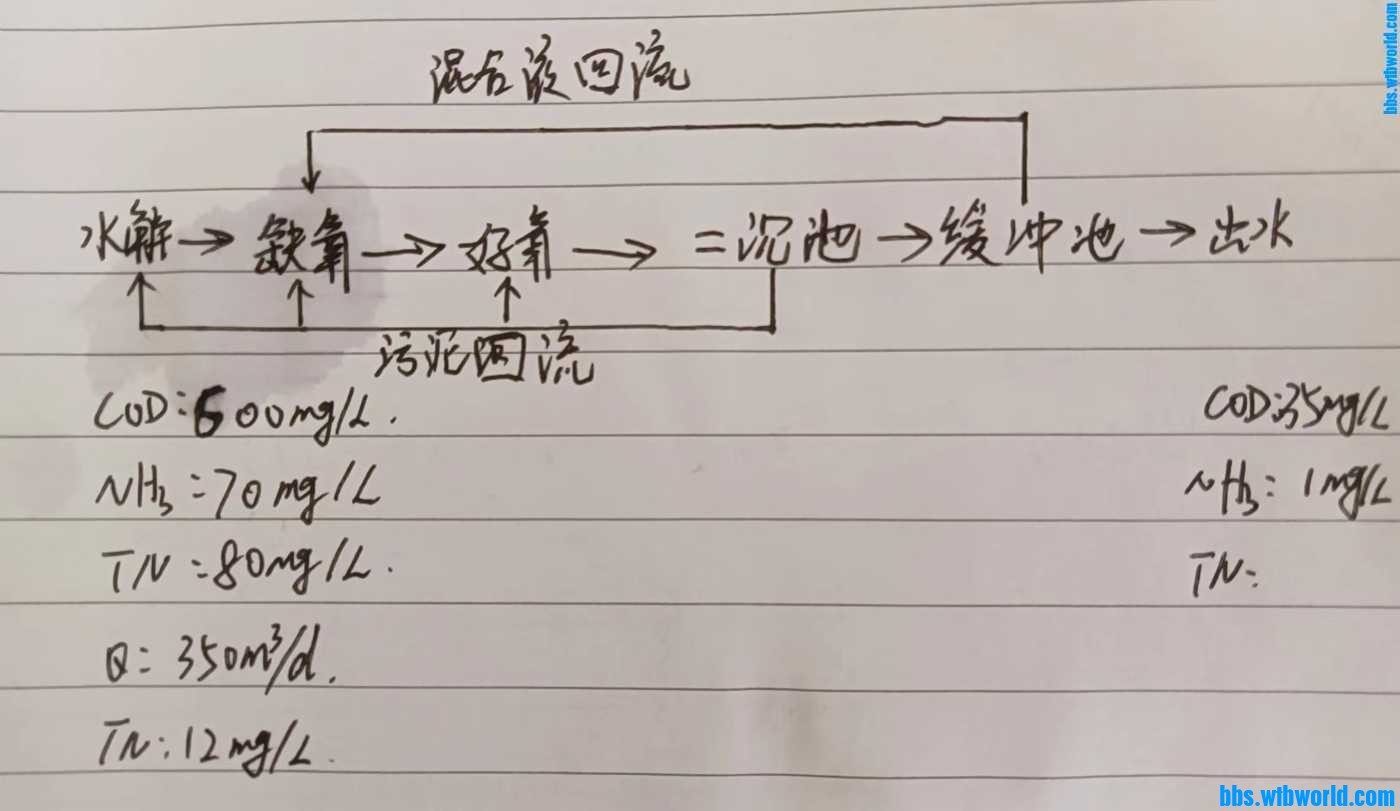 bbs.wibworld.com
混合液回流
水解→缺氧→好氧→二沉池→缓冲池→出水
污泥回流
COD:500mg/L.
COD:35mg/L
NH3:70mg/L
NH3:1mg/L
TN:80mg/L.
TN:
Q:350m³/d.
TN:12mg/L.
bbs.wibworld.com